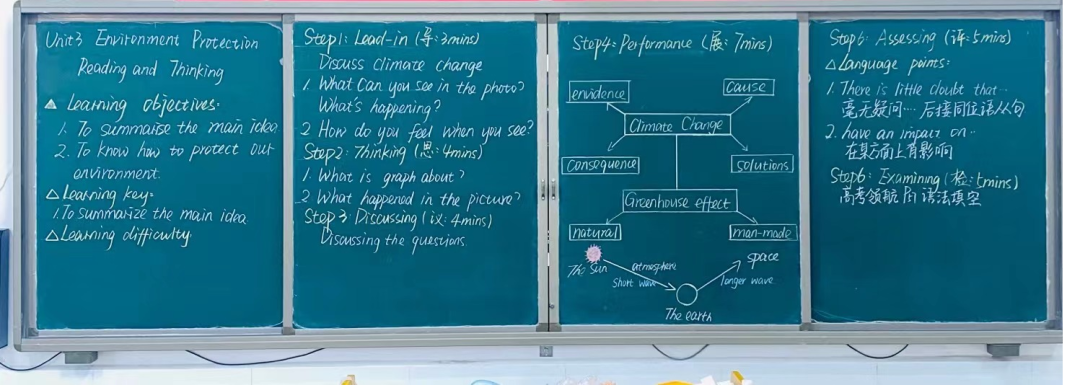 Unit3 Environment Protection
Reading and Thinking
▲ Learning objectives:
1. To summarise the main idea
2. To know how to protect out
environment.
△ Learning key:
1. To summarize the main idea
△ Learning difficulty:
Step1: Lead-in (导:3mins)
Discuss climate change
1. What can you see in the photo?
What's happening?
2 How do you feel when you see?
Step2: Thinking (思:4mins)
1. What is graph about?
2 What happened in the picture?
Step3: Discussing (议:4mins)
Discussing the questions.
Step4: Performance (展:7mins)
envidence
cause
Climate Change
consequence
solutions
Greenhouse effect
natural
man-made
The Sun
atmosphere
short wave
space
longer wave
The earth
Step5: Assessing (评:5mins)
△ Language points:
1. There is little doubt that...
毫无疑问... 后接同位语从句
2. have an impact on...
在某方面上有影响
Step6: Examining (检:5mins)
高考领航 语法填空